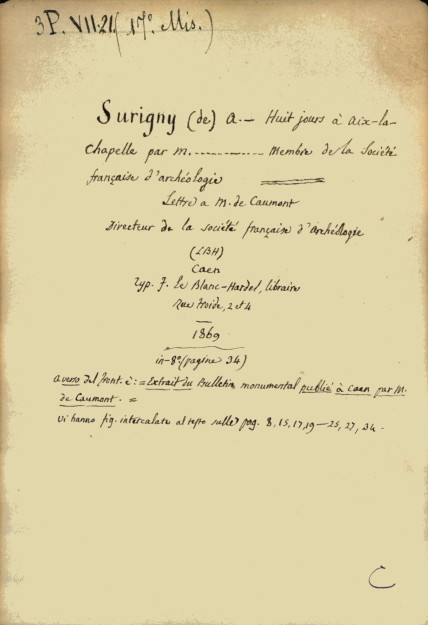 3P. VII.21. (17º. Mis.)
Surigny (de) A. — Huit jours à Aix-la-
Chapelle par M. ............ Membre de la Société
française d'archéologie
Lettre a M. de Caumont
Directeur de la société française d'Archéologie
(LBH)
Caen
Typ. F. le Blanc-Hardel, libraire
Rue Froide, 2 et 4
1869
in-8º (pagine 34)
A verso del front. è: = Extrait du Bulletin monumental publié à Caen par M.
de Caumont. =
Vi hanno fig. intercalate al testo sulle pag. 8, 15, 17, 19 — 25, 27, 34 -
C